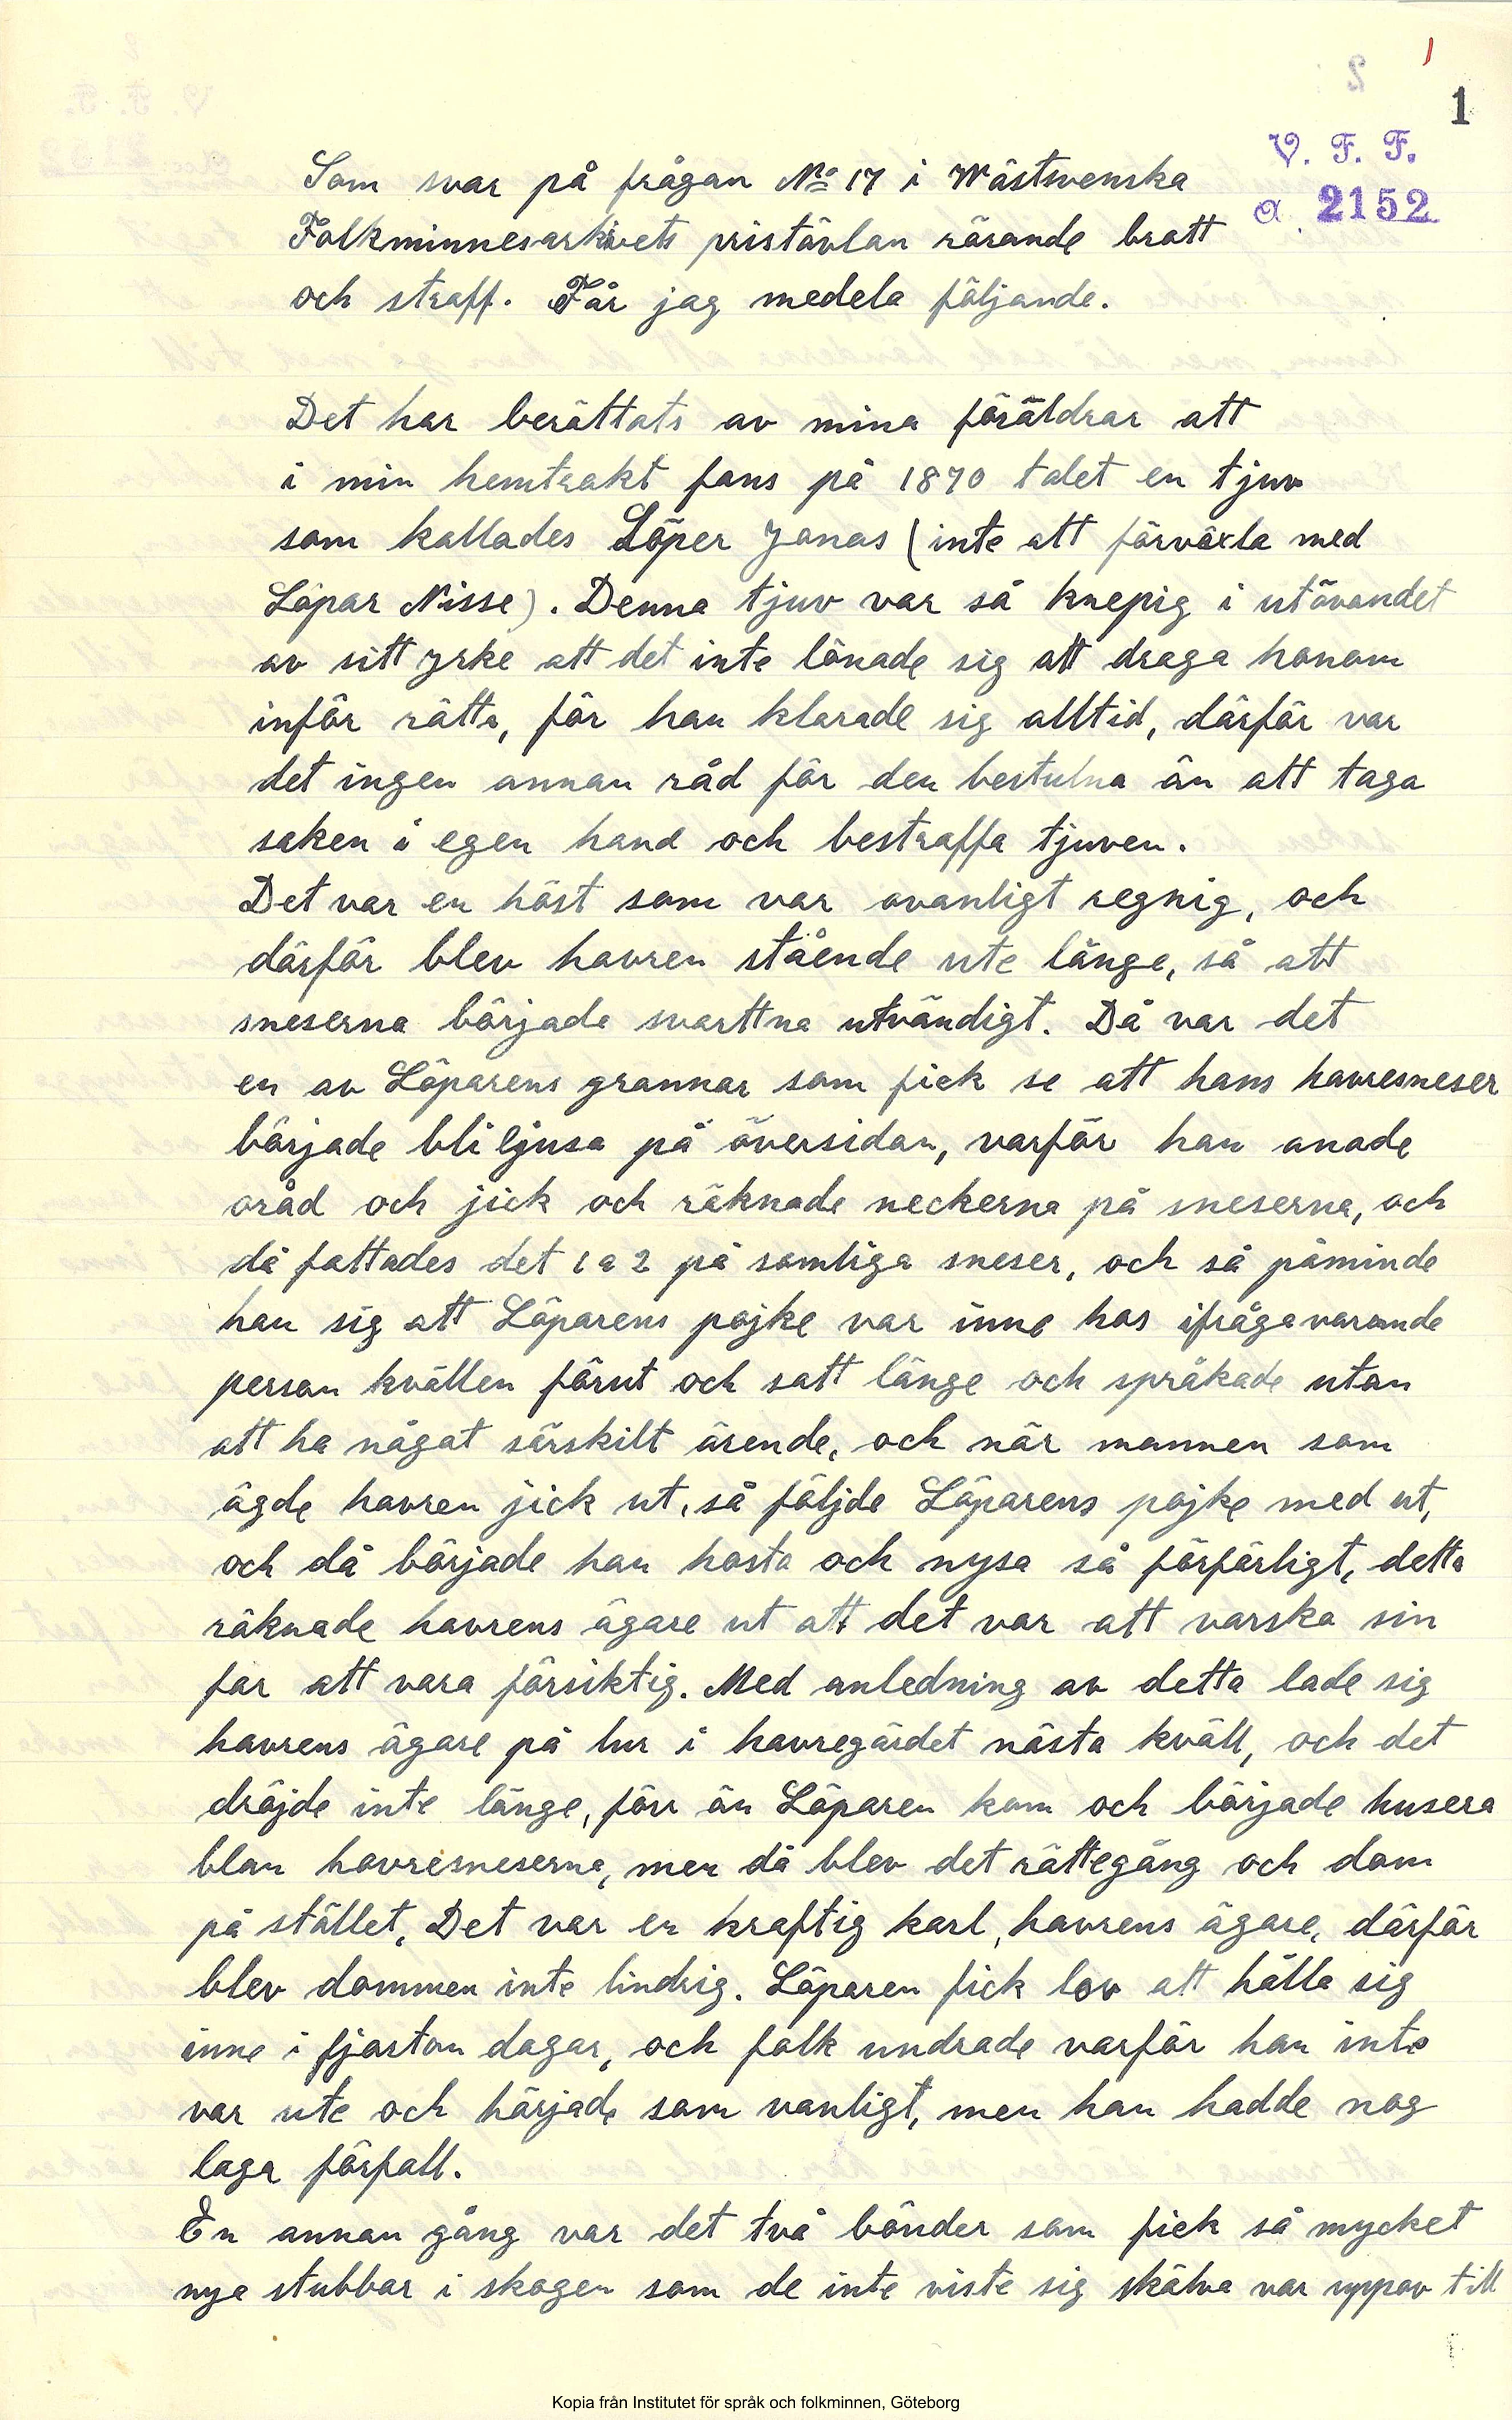 1
1
V. F. F.
a. 2152
Som svar på frågan No 17 i Wästsvenska
Folkminnesarkivets pristävlan rörande brott
och straff. Får jag medela följande.
Det har berättats av mina föräldrar att
i min hemtrakt fans på 1870 talet en tjuv
som kallades Löper Jonas (inte att förväxla med
Löpar Nisse). Denna tjuv var så knepig i utövandet
av sitt yrke att det inte lönade sig att draga honom
inför rätta, för han klarade sig alltid, därför var
det ingen annan råd för den bestulna än att taga
saken i egen hand och bestraffa tjuven.
Det var en höst som var ovanligt regnig, och
därför blev havren stående ute länge, så att
sneserna började svarttna utvändigt. Då var det
en av Löparens grannar som fick se att hans havresneser
började bli ljusa på översidan, varför han anade
oråd och jick och räknade neckerna på sneserna, och
då fattades det 1 a 2 på somliga sneser, och så påminde
han sig att Löparens pojke var inne hos ifrågavarande
person kvällen förut och satt länge och språkade utan
att ha något särskilt ärende, och när mannen som
ägde havren jick ut, så följde Löparens pojke med ut,
och då började han hosta och nysa så förfärligt, detta
räknade havrens ägare ut att det var att varska sin
far att vara försiktig. Med anledning av detta lade sig
havrens ägare på lur i havregärdet nästa kväll, och det
dröjde inte länge, förr än Löparen kom och började husera
blan havresneserna, men då blev det rättegång och dom
på stället, Det var en kraftig karl, havrens ägare, därför
blev dommen inte lindrig. Löparen fick lov att hålla sig
inne i fjorton dagar, och folk undrade varför han inte
var ute och härjade som vanligt, men han hadde nog
laga förfall.
En annan gång var det två bönder som fick så mycket
nya stubbar i skogen som de inte viste sig skälva var uppov till
Kopia från Institutet för språk och folkminnen, Göteborg